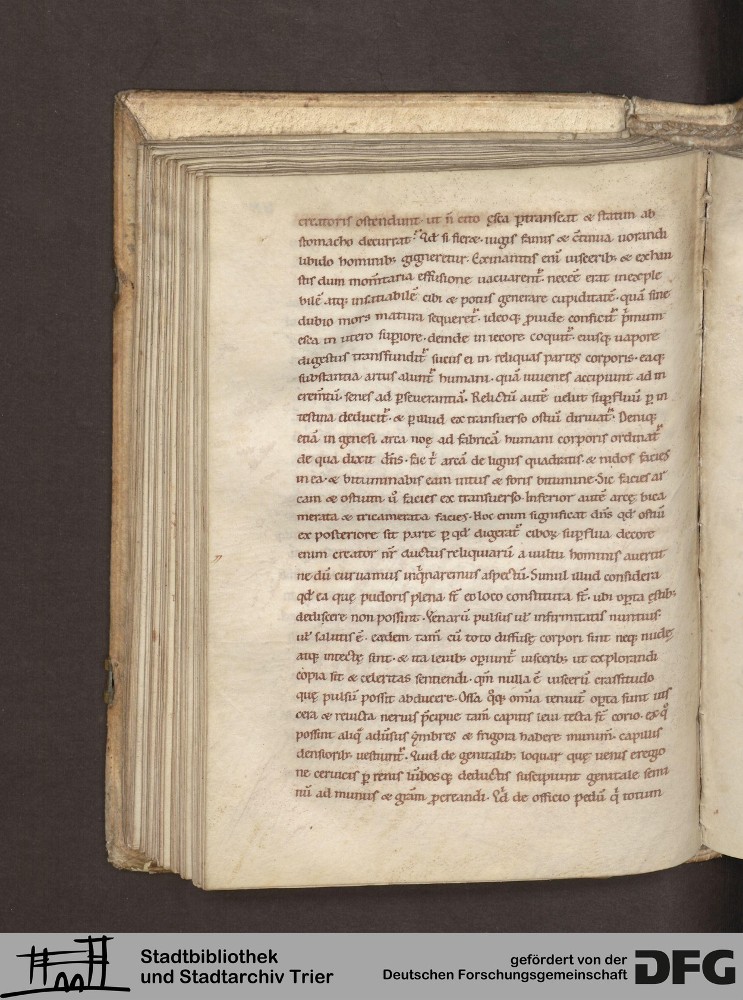 creatoris ostendunt· ut ñ cito ęsca ꝑtranseat & statim ab
stomacho decurrat· Qđ si fieret· iugis famis & c̄tinua uorandi
libido hominib; gigneretur· Exinanitis enī uiscerib; & exhau
stis dum mom̄taria effusione uacuarent᷑· necēe erat inexple
bilē· atq; insatiabilē cibi & potus generare cupiditatē· quā sine
dubio mors matura sequeret᷑· ideoq; ꝓuide conficit᷑ p̄mum
esca in utero suꝑiore· deinde in iecore coquit᷑· eiusq; uapore
digestus transfundit᷑ sucus ei in reliquas partes corporis· eaq;
substantia artus alunt᷑ humani· quā iuuenes accipiunt ad in
crem̄tū· senes ad ꝑseuerantiā· Relictū autē uelut suꝑfluū ꝑ in
testina deducit᷑· & ꝑ illud ex transuerso ostiū diriuat᷑· Deniq;
etiā in genesi arca noę ad fabricā humani corporis ordinat᷑
de qua dixit dn̄s· fac t̄ arcā de lignis quadratis· & nidos facies
in ea· & bituminabis eam intus & foris bitumine· Sic facies ar
cam & ostium ů facies ex transuerso· Inferior autē arcę bica
merata & tricamerata facies· Hoc enim significat dn̄s qđ ostiū
ex posteriore sit parte ꝑ qđ digerat᷑ ciboꝝ suꝑflua decore
enim creator nr̄ ductus reliquiarū a uultu hominis auertit
ne dū curuamus inq̇naremus aspectū· Simul illud considera
qđ ea quę pudoris plena st̄ eo loco constituta st̄· ubi oꝑta ęstib;
dediscere non possint· Venarū pulsus uł infirmitatis nuntius·
uł salutis ē· eędem tam̄ cū toto diffusę corpori sint neq; nudę
atq; intectę sint· & ita leuib; oꝑiunt᷑ uiscerib; ut explorandi
copia sit & celeritas sentiendi· qm̄ nulla ē uiscerū crassitudo
quę pulsū possit abducere· Ossa q̊q; om̄ia tenui oꝑta sunt uis
cera & reuicta neruis p̄cipue tam̄ capitis leui tecta st̄ corio· ex q̊
possint aliq̊ aduersus ymbres & frigora habere munim̄· capillis
densiorib; uestiunt᷑· Quid de genitalib; loquar quę uenis e regio
ne ceruicis ꝑ renis lūbosq; deductis suscipiunt genitale semi
nū ad munus & gr̄am ꝓcreandi· Qđ de officio pedū q̇ totum
Stadtbibliothek
und Stadtarchiv Trier
gefördert von der
Deutschen Forschungsgemeinschaft
DFG